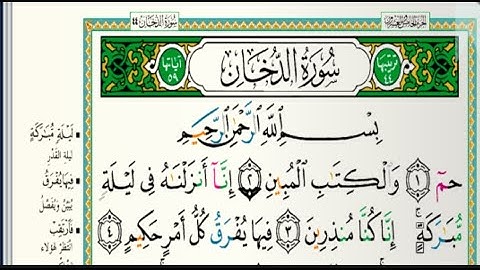 سُورَةُ الدُّخَانِ ٤٤
ترتيبها ٤٤
سُورَةُ الدُّخَانِ
آياتها ٥٩
بِسْمِ ٱللَّهِ ٱلرَّحْمَٰنِ ٱلرَّحِيمِ
حمٓ ١ وَٱلْكِتَٰبِ ٱلْمُبِينِ ٢ إِنَّآ أَنزَلْنَٰهُ فِى لَيْلَةٍ
مُّبَٰرَكَةٍ إِنَّا كُنَّا مُنذِرِينَ ٣ فِيهَا يُفْرَقُ كُلُّ أَمْرٍ حَكِيمٍ ٤
لَيْلَةٍ مُّبَٰرَكَةٍ
ليلة القدر
فِيهَا يُفْرَقُ
يُبَيَّنُ ويُفَصَّلُ
فَٱرْتَقِبْ
انتظر لهؤلاء